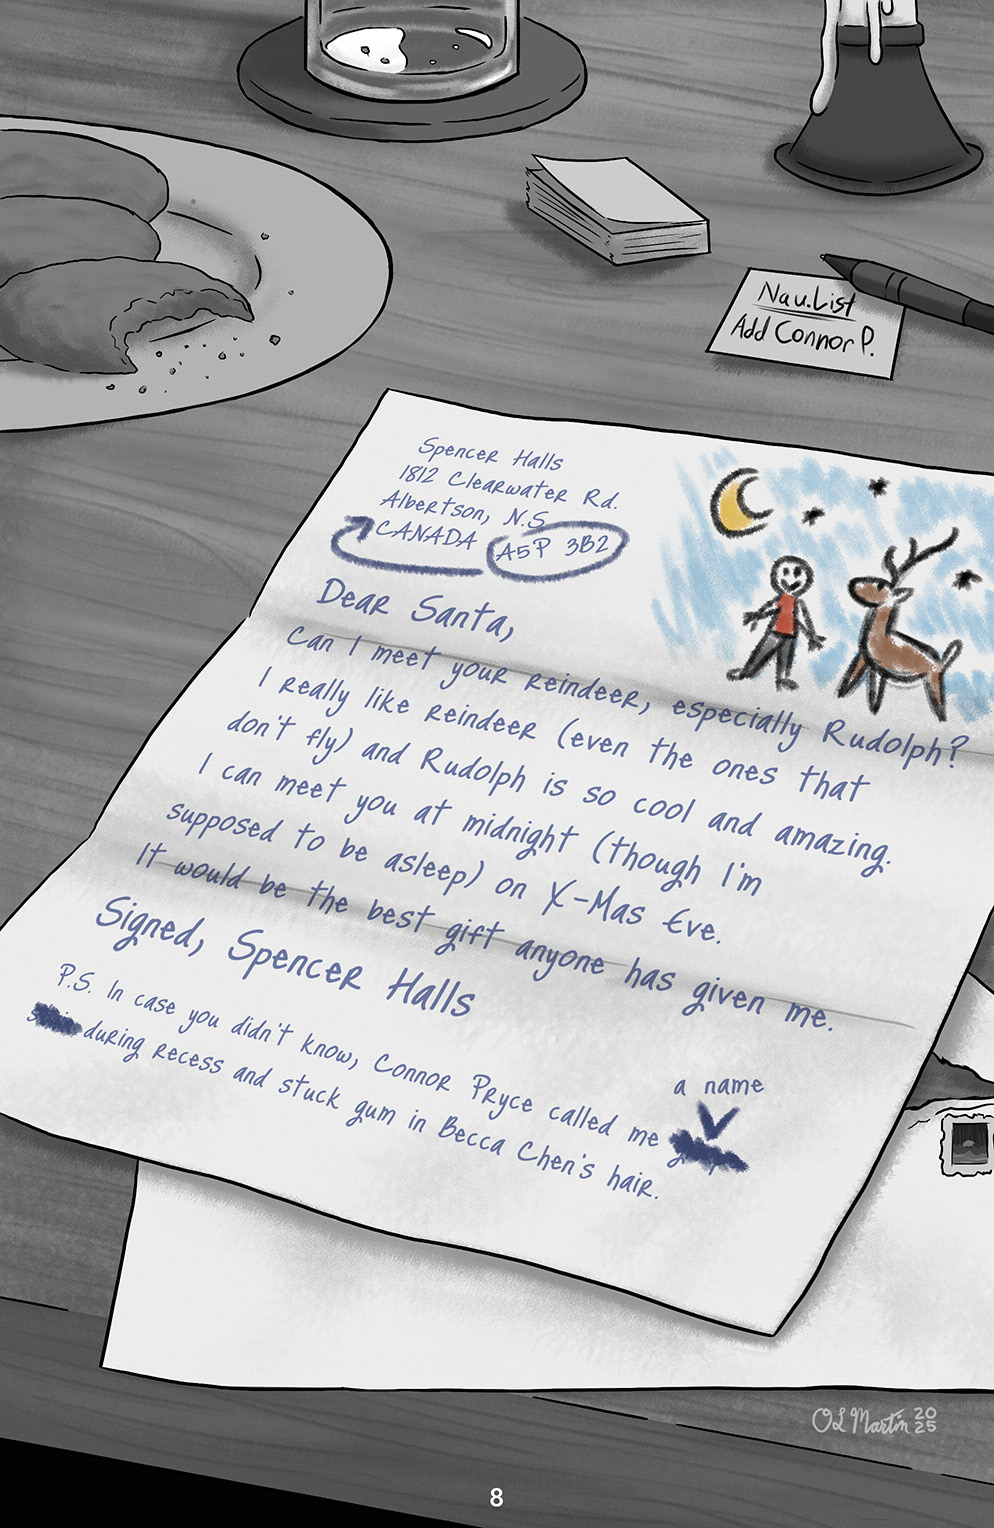 Nau.List
Add Connor P.
Spencer Halls
1812 Clearwater Rd.
Albertson, N.S
CANADA A5P 3B2
Dear Santa,
Can I meet your reindeer, especially Rudolph?
I really like reindeer (even the ones that
don't fly) and Rudolph is so cool and amazing.
I can meet you at midnight (though I'm
supposed to be asleep) on X-Mas Eve.
It would be the best gift anyone has given me.
Signed, Spencer Halls
P.S. In case you didn't know, Connor Pryce called me a name
during recess and stuck gum in Becca Chen's hair.
OL Martin 2025
8